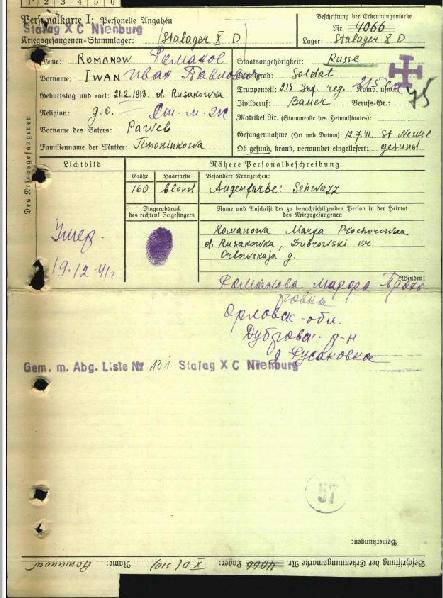 1 2 3 4 5 6
Personalkarte I: Personelle Angaben
Beschriftung der Erkennungsmarke
Stalag X C Nienburg
Nr. 4066
Kriegsgefangenen-Stammlager: Stalager X D
Lager: Stalager X D
Des Kriegsgefangenen
Name: ROMANOW Романов
Staatsangehörigkeit: Russe
Vorname: IWAN Иван Павлович
Dienstgrad: Soldat
Geburtstag und -ort: 21.2.1913. d. Rusakowka
Truppenteil: 213 Inf. reg.
75
Religion: g.o.
Zivilberuf: Bauer Berufs-Gr.:
Vorname des Vaters: Paweł
Gefangennahme (Ort und Datum): 12.7.41
Familienname der Mutter:
Ob gesund, krank, verwundet eingeliefert: gesund
Lichtbild
Nähere Personalbeschreibung
Größe Haarfarbe Besondere Kennzeichen:
160 Blond Augenfarbe: Schwarz
Fingerabdruck des rechten Zeigefingers
Name und Anschrift der zu benachrichtigenden Person in der Heimat des Kriegsgefangenen
Умер
19.12.41г
Romanowa
d. Rusakowka, Dubrowski
Orłowskaja g.
Романова
Орловск. обл.
Дуброва р-н
д Русановка
Gem. m. Abg. Liste Nr Stalag X C Nienburg
57
Bemerkungen:
Beschriftung der Erkennungsmarke Nr. 4066 Lager: X D Name: Romanow